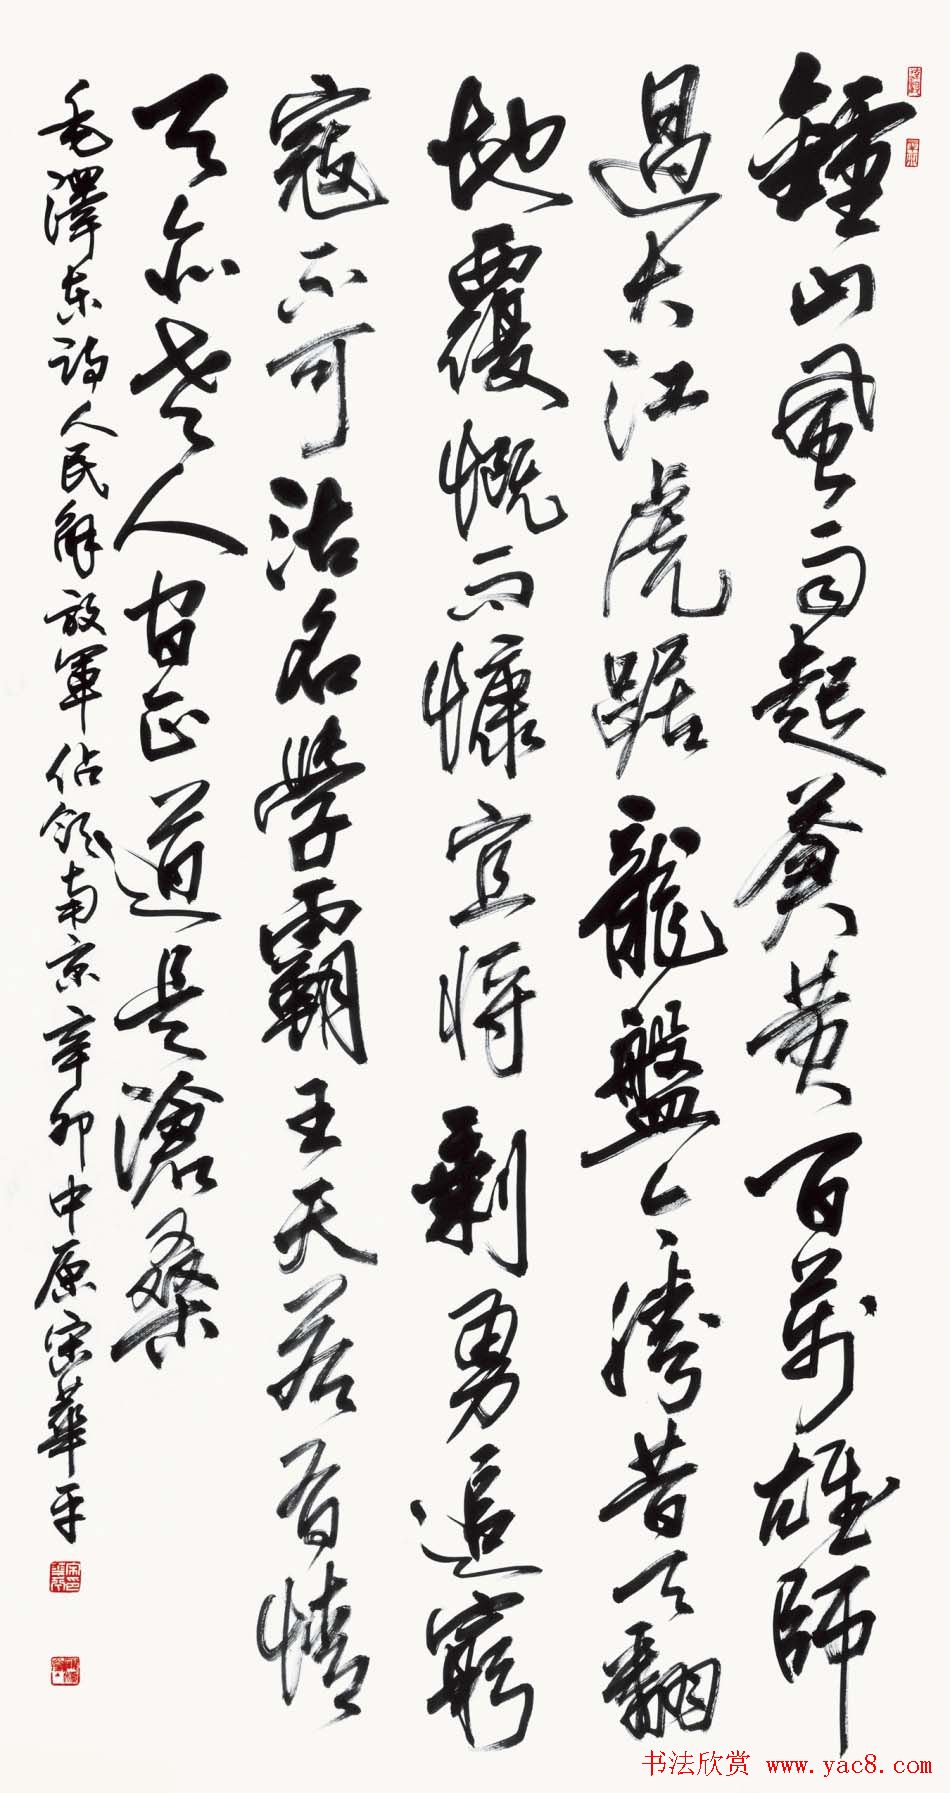 鍾山風雨起蒼黄百萬雄師
過大江虎踞龍盤今勝昔天翻
地覆慨而慷宜將剩勇追窮
寇不可沽名學霸王天若有情
天亦老人間正道是滄桑
毛澤東詩人民解放軍佔領南京辛卯中原宋華平
书法欣赏 www.yac8.com